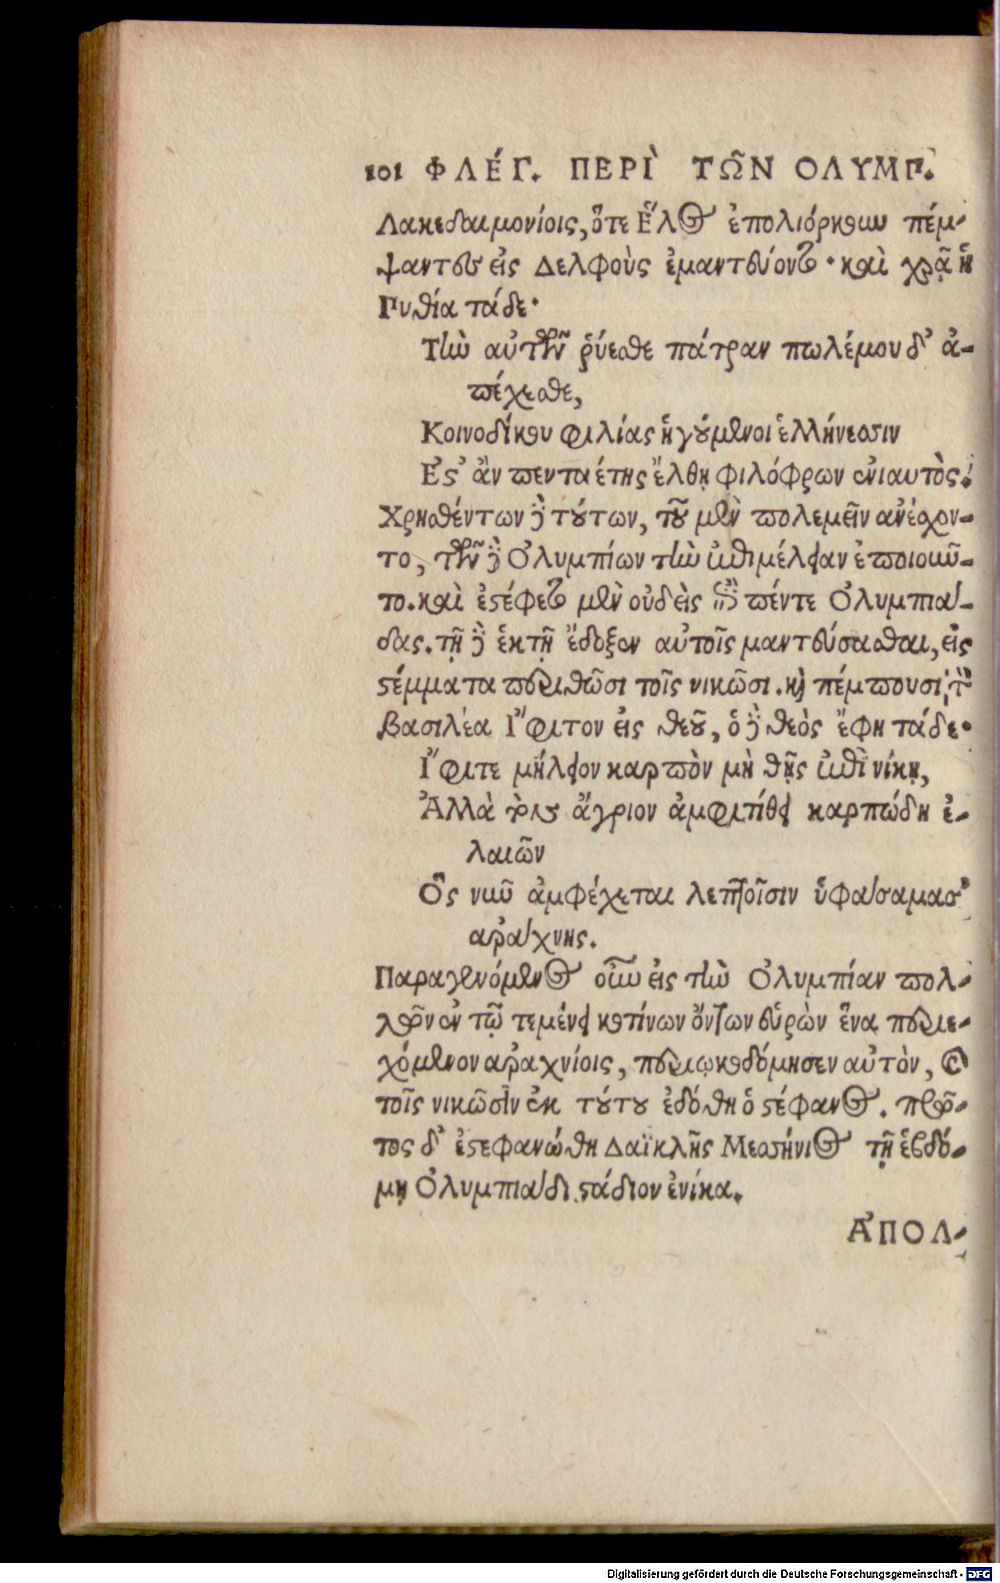 101 ΦΛΈΓ. ΠΕΡῚ ΤΩ͂Ν ΟΛΥΜΠ.
Λακεδαιμονίοις, ὅτε Ἕλος ἐπολιόρκουν πέμ-
ψαντες εἰς Δελφοὺς ἐμαντεύοντο· καὶ χρᾷ ἡ
Πυθία τάδε·
Τὴν αὐτῶν ῥύεσθε πάτραν πολέμου δ' ἀ-
πέχεσθε,
Κοινοδίκου φιλίας ἡγούμενοι ἑλλήνεσσιν
Ἐς' ἂν πενταέτης ἔλθῃ φιλόφρων ἐνιαυτός.
Χρησθέντων δὲ τούτων, τοῦ μὲν πολεμεῖν ἀνέσχον-
το, τῶν δὲ Ὀλυμπίων τὴν ἐπιμέλειαν ἐποιοῦν-
το. καὶ ἐστέφετο μὲν οὐδεὶς ἐπὶ πέντε Ὀλυμπιά-
δας. τῇ δὲ ἑκτῇ ἔδοξεν αὐτοῖς μαντεύσασθαι, εἰς
στέμματα περιθῶσι τοῖς νικῶσι. καὶ πέμπουσι τὸν
βασιλέα Ἴφιτον εἰς θεοῦ, ὁ δὲ θεὸς ἔφη τάδε·
Ἴφιτε μήλειον καρπὸν μὴ θῇς ἐπὶ νίκῃ,
Ἀλλὰ τὸν ἄγριον ἀμφιτίθει καρπώδη ἐ-
λαιῶν
Ὃς νῦν ἀμφέχεται λεπτοῖσιν ὑφάσμασ'
ἀράχνης.
Παραγενόμενος οὖν εἰς τὴν Ὀλυμπίαν πολ-
λῶν ἐν τῷ τεμένει κοτίνων ὄντων εὑρὼν ἕνα περιε-
χόμενον ἀραχνίοις, περιῳκοδόμησεν αὐτὸν, καὶ
τοῖς νικῶσιν ἐκ τούτου ἐδόθη ὁ στέφανος. πρῶ-
τος δ' ἐστεφανώθη Δαϊκλῆς Μεσσήνιος τῇ ἑβδό-
μῃ Ὀλυμπιάδι στάδιον ἐνίκα.
ἈΠΟΛ-
Digitalisierung gefördert durch die Deutsche Forschungsgemeinschaft - DFG